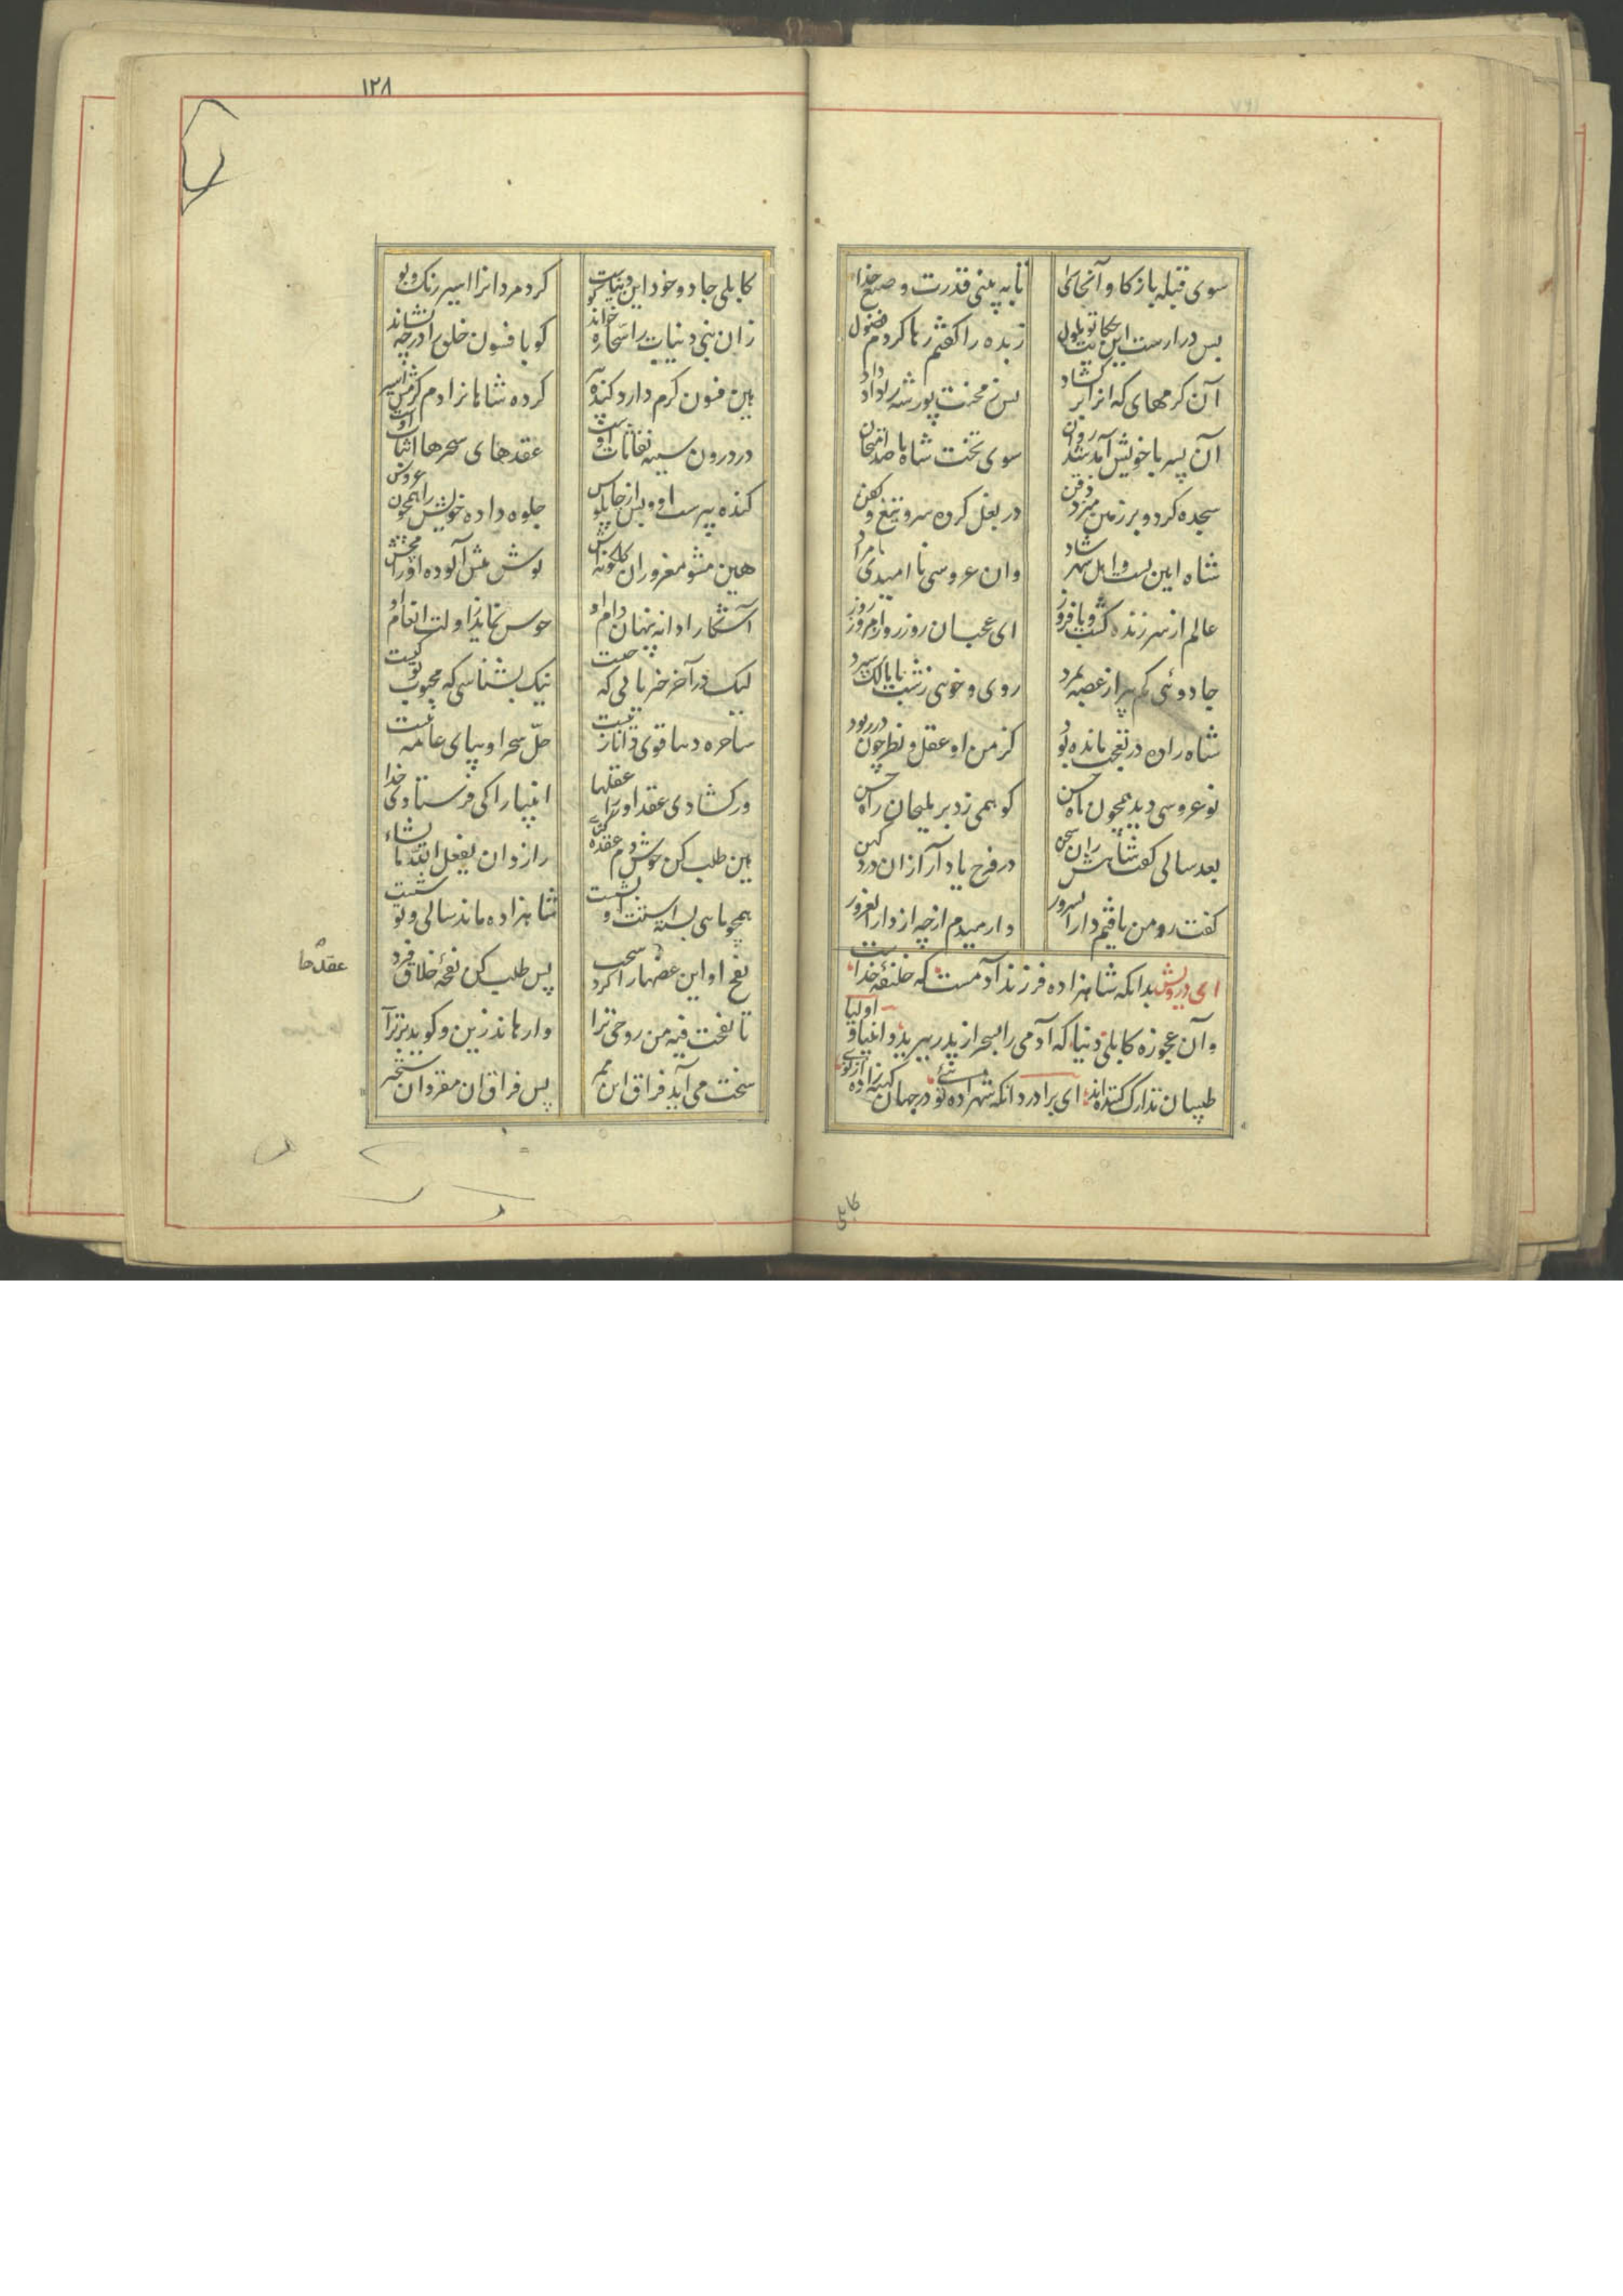 سوی قبله باز کاو آنجای را تا به بینی قدرت و صنع خدا
بس درازست این حکایت تو ملول زبده را گفتم رها کردم فضول
آن کرمهای گران را بر گشاد پس ز محنت پور شه را راه داد
آن پسر با خویش آمد شد دوان سوی تخت شاه با صد امتحان
سجده کرد و بر زمین میزد ذقن در بغل کرده سر و تیغ و کفن
شاه ایین بست و اهل شهر شاد وان عروسی ناامیدی نامراد
عالم از سر زنده گشت و با فروز ای عجب ان روز روز امروز روز
جادوئی کمپیر از غصه بمرد روی و خوی زشت با مالک سپرد
شاه زاده در تعجب مانده بود کز من او عقل و نظر چون در ربود
نو عروسی دید همچون ماه حسن کو همی زد بر ملیحان راه حسن
بعد سالی گفت شاهش در سخن در فرح یاد آر از ان درد کهن
گفت رو من یافتم دار السرور وا رمیدم از چه از دار الغرور
ای درویش بدانکه شاهزاده فرزند آدمست که خلیفهٔ خداست
و آن عجوزه کابلی دنیا که آدمی را بسحر از پدر ببرید و انبیا و اولیا
طبیبان تدارک کننده اند ای برادر دانکه شهزاده توئی در جهان کهنه زاده از نوی
کابلی
۱۲۸
کابلی جادو خود این دنیاست کو کرد مردانرا اسیر رنگ و بو
زان نبی دنیات را سحاره خواند کو بافسون خلق را در چه نشاند
هین فسون گرم دارد گنده پیر کرده شاهانرا دم گرمش اسیر
در درون سینه نفاثات اوست عقدهای سحرها اثبات اوست
گنده پیرست او و بس از چاپلوس جلوه داده خویش را همچون عروس
هین مشو مغرور ان گلگونه اش نوش نیش آلوده او را مچش
آشکارا دانه پنهان دام او خوش نماید ز اولت انعام او
لیک در آخر خبر یابی که چیست نیک بشناسی که محبوب تو کیست
ساحره دنیا قوی دانا زنیست حل سحر او بپای عامه نیست
ور گشادی عقد او را عقلها انبیا را کی فرستادی خدا
هین طلب کن خوش دم عقده گشای رازدان یفعل الله ما یشاء
همچو ماهی بسته استت او بشست شاهزاده ماند سالی و تو شست
نفخ او این عقدها را سخت کرد پس طلب کن نفخهٔ خلاق فرد
عقدها
تا نفخت فیه من روحی ترا وا رهاند زین و گوید برتر آ
سخت می آید فراق این ممر پس فراق ان مقر دان سخت تر